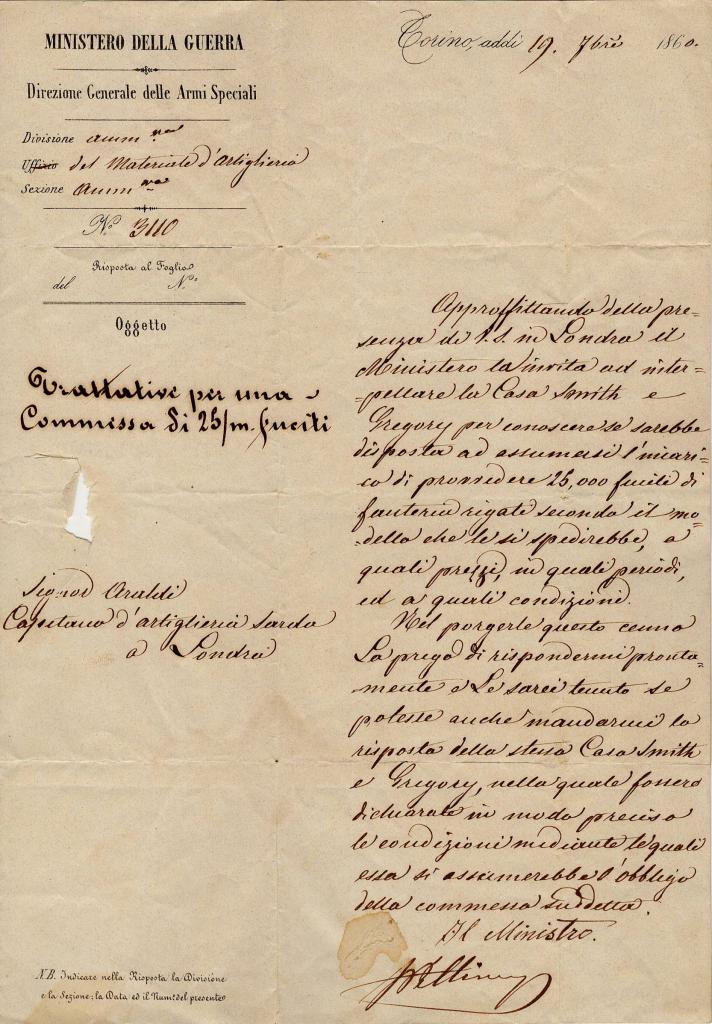 MINISTERO DELLA GUERRA
Direzione Generale delle Armi Speciali
Divisione Amm.va
Uffizio del Materiale d'Artiglieria
Sezione Amm.va
No 3110
Risposta al Foglio
del No.
Oggetto
Trattative per una
Commessa di 25/m. fucili
Signor Araldi
Capitano d'artiglieria sarda
a Londra
N.B. Indicare nella Risposta la Divisione
e la Sezione; la Data ed il Num.° del presente
Torino, addì 19. 7bre 1860.
Approffittando della pre=
senza di S.S. in Londra il
Ministero la invita ad inter=
=pellare la Casa Smith e
Gregory per conoscere se sarebbe
disposta ad assumersi l'incari=
co di provvedere 25,000 fucili di
fanteria rigati secondo il mo=
=dello che le si spedirebbe, a
quali prezzi, in quali periodi,
ed a quali condizioni.
Nel porgerle questo cenno
La prego di rispondermi pronta=
mente e Le sarei tenuto se
potesse anche mandarmi la
risposta della stessa Casa Smith
e Gregory, nella quale fossero
dichiarate in modo preciso
le condizioni mediante le quali
essa si assumerebbe l'obbligo
della commessa suddetta.
Il Ministro.